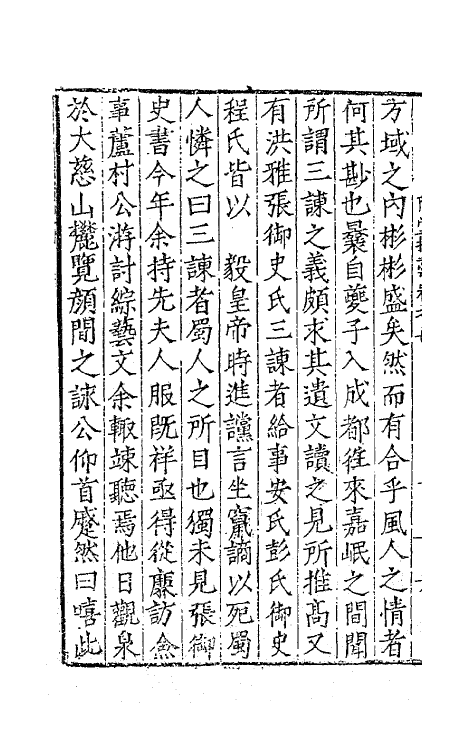 方域之內彬彬盛矣然而有合乎風人之情者
何其尠也曩自夔子入成都徃來嘉岷之間聞
所謂三諌之義頗求其遺文讀之見所推髙又
有洪雅張御史氏三諌者給事安氏彭氏御史
程氏皆以　毅皇帝時進讜言坐竄謫以死蜀
人憐之曰三諌者蜀人之所目也獨未見張御
史書今年余持先夫人服既祥亟得從廉訪僉
事蘆村公游討綜藝文余輙竦聽焉他日觀泉
於大慈山麓覽顔間之䛾公仰首蹙然曰嘻此